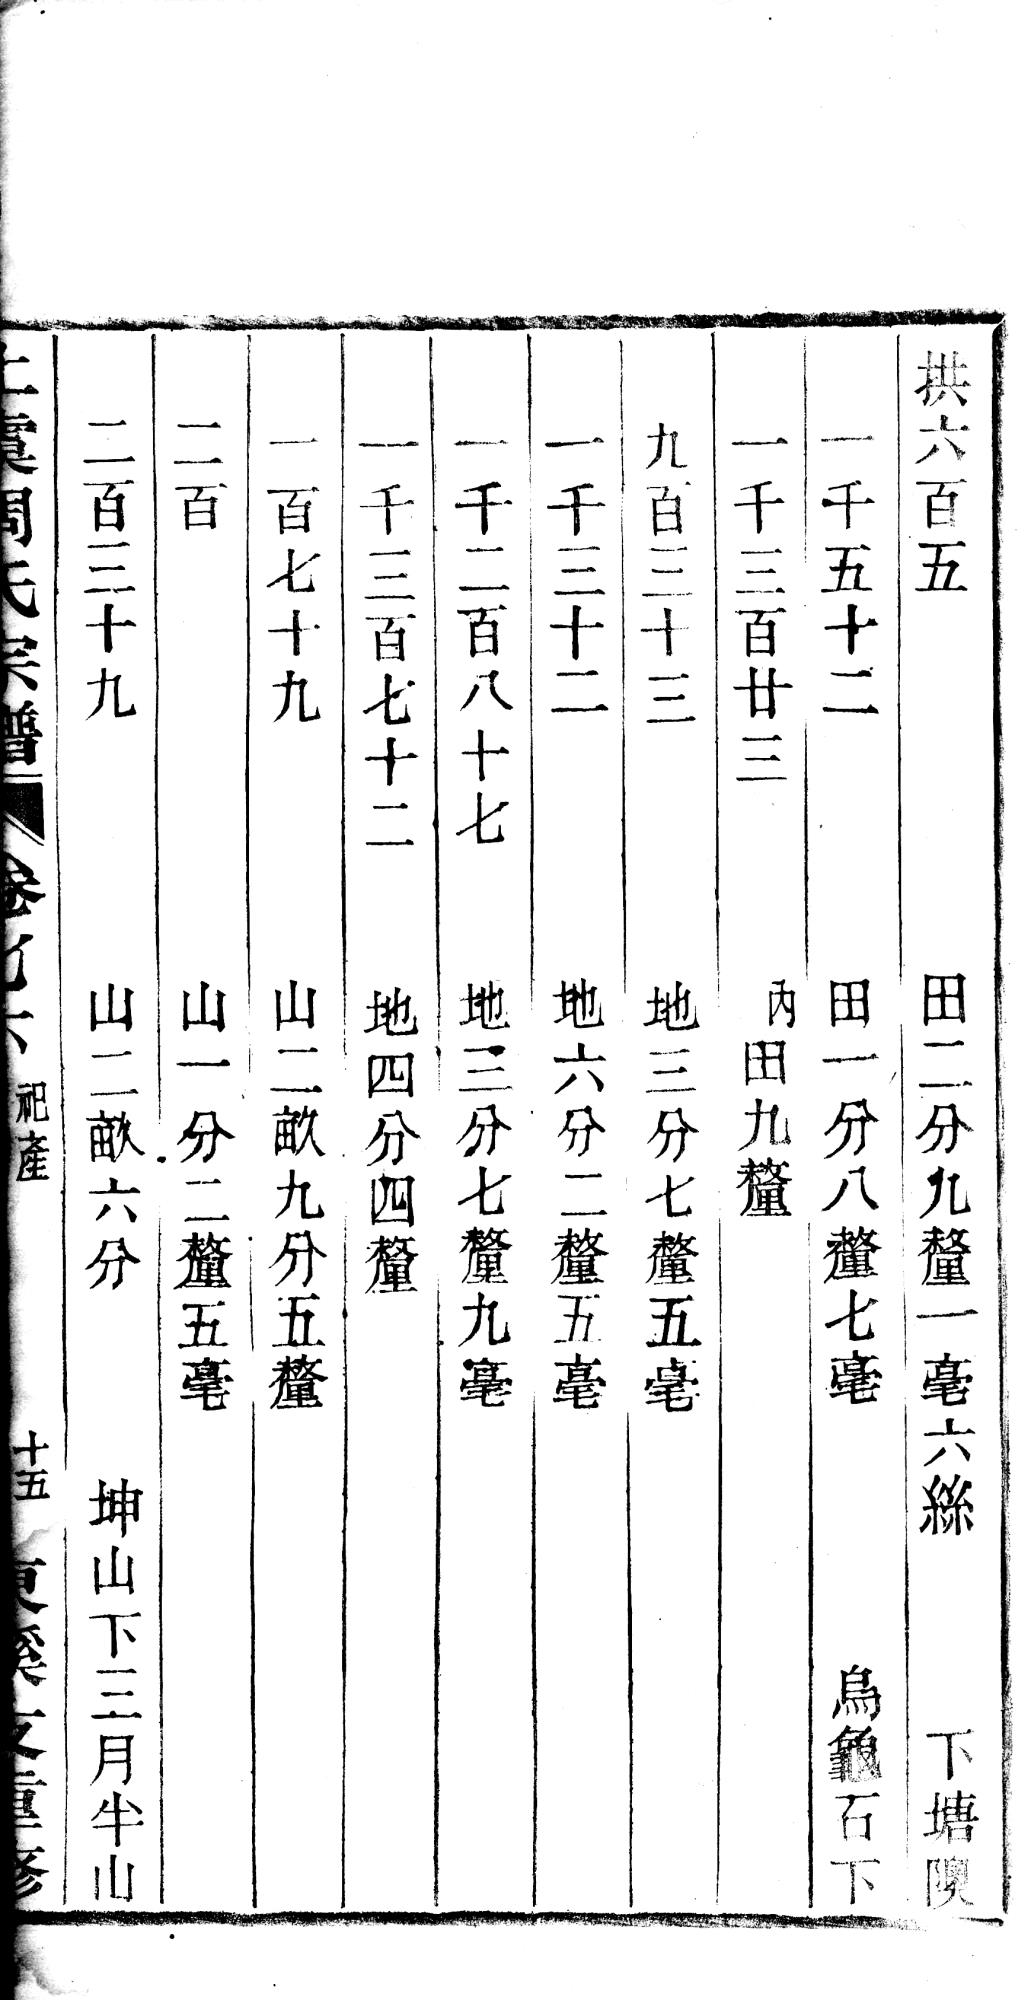 拱六百五 田二分九釐一毫六絲 下塘隩
一千五十二 田一分八釐七毫 烏龜石下
一千三百廿三 內田九釐
九百三十三 地三分七釐五毫
一千三十二 地六分二釐五毫
一千二百八十七 地三分七釐九毫
一千三百七十二 地四分四釐
一百七十九 山二畝九分五釐
二百 山一分二釐五毫
二百三十九 山二畝六分 坤山下三月半山
上虞周氏宗譜 卷 六 祀產 十五 東溪支重修